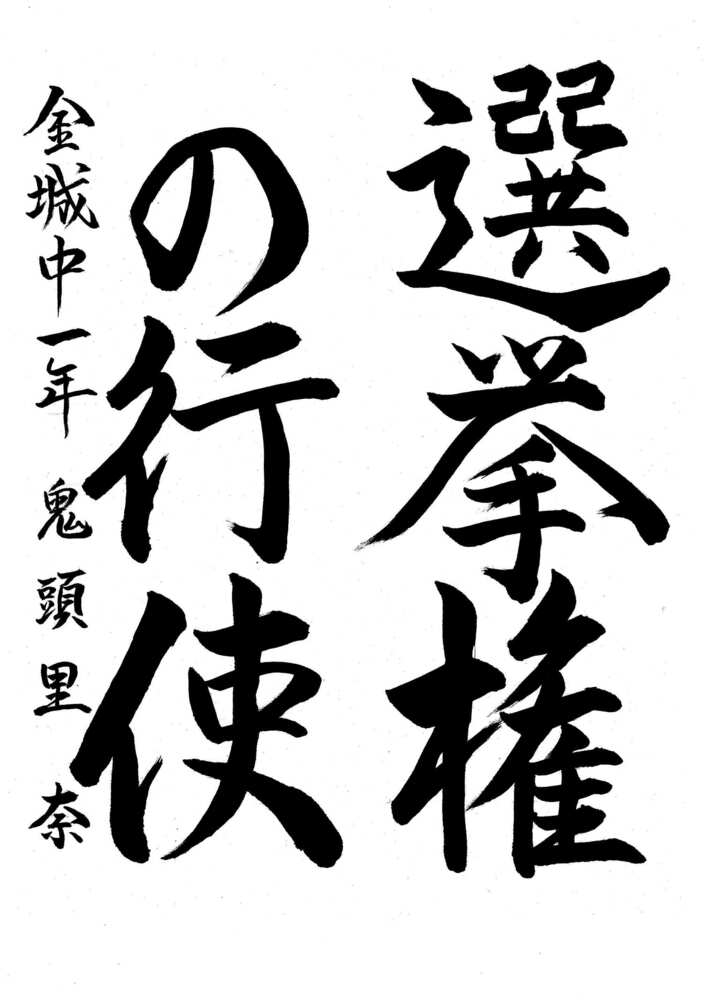 選挙権
の行使
金城中一年 鬼頭里奈